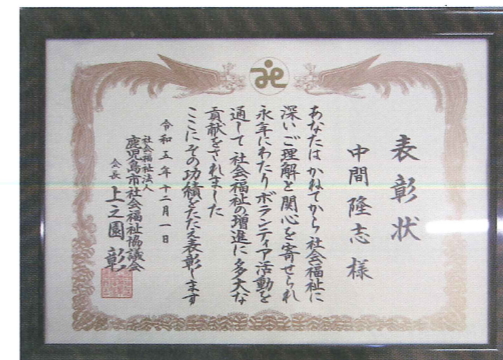 表彰状
中間隆志 様
あなたは かねてから 社会福祉に
深いご理解と関心を寄せられ
永年にわたりボランティア活動を
通して 社会福祉の増進に多大な
貢献をされました
ここにその功績をたたえ表彰します
令和五年十二月一日
社会福祉法人
鹿児島市社会福祉協議会
会長 上之園 彰